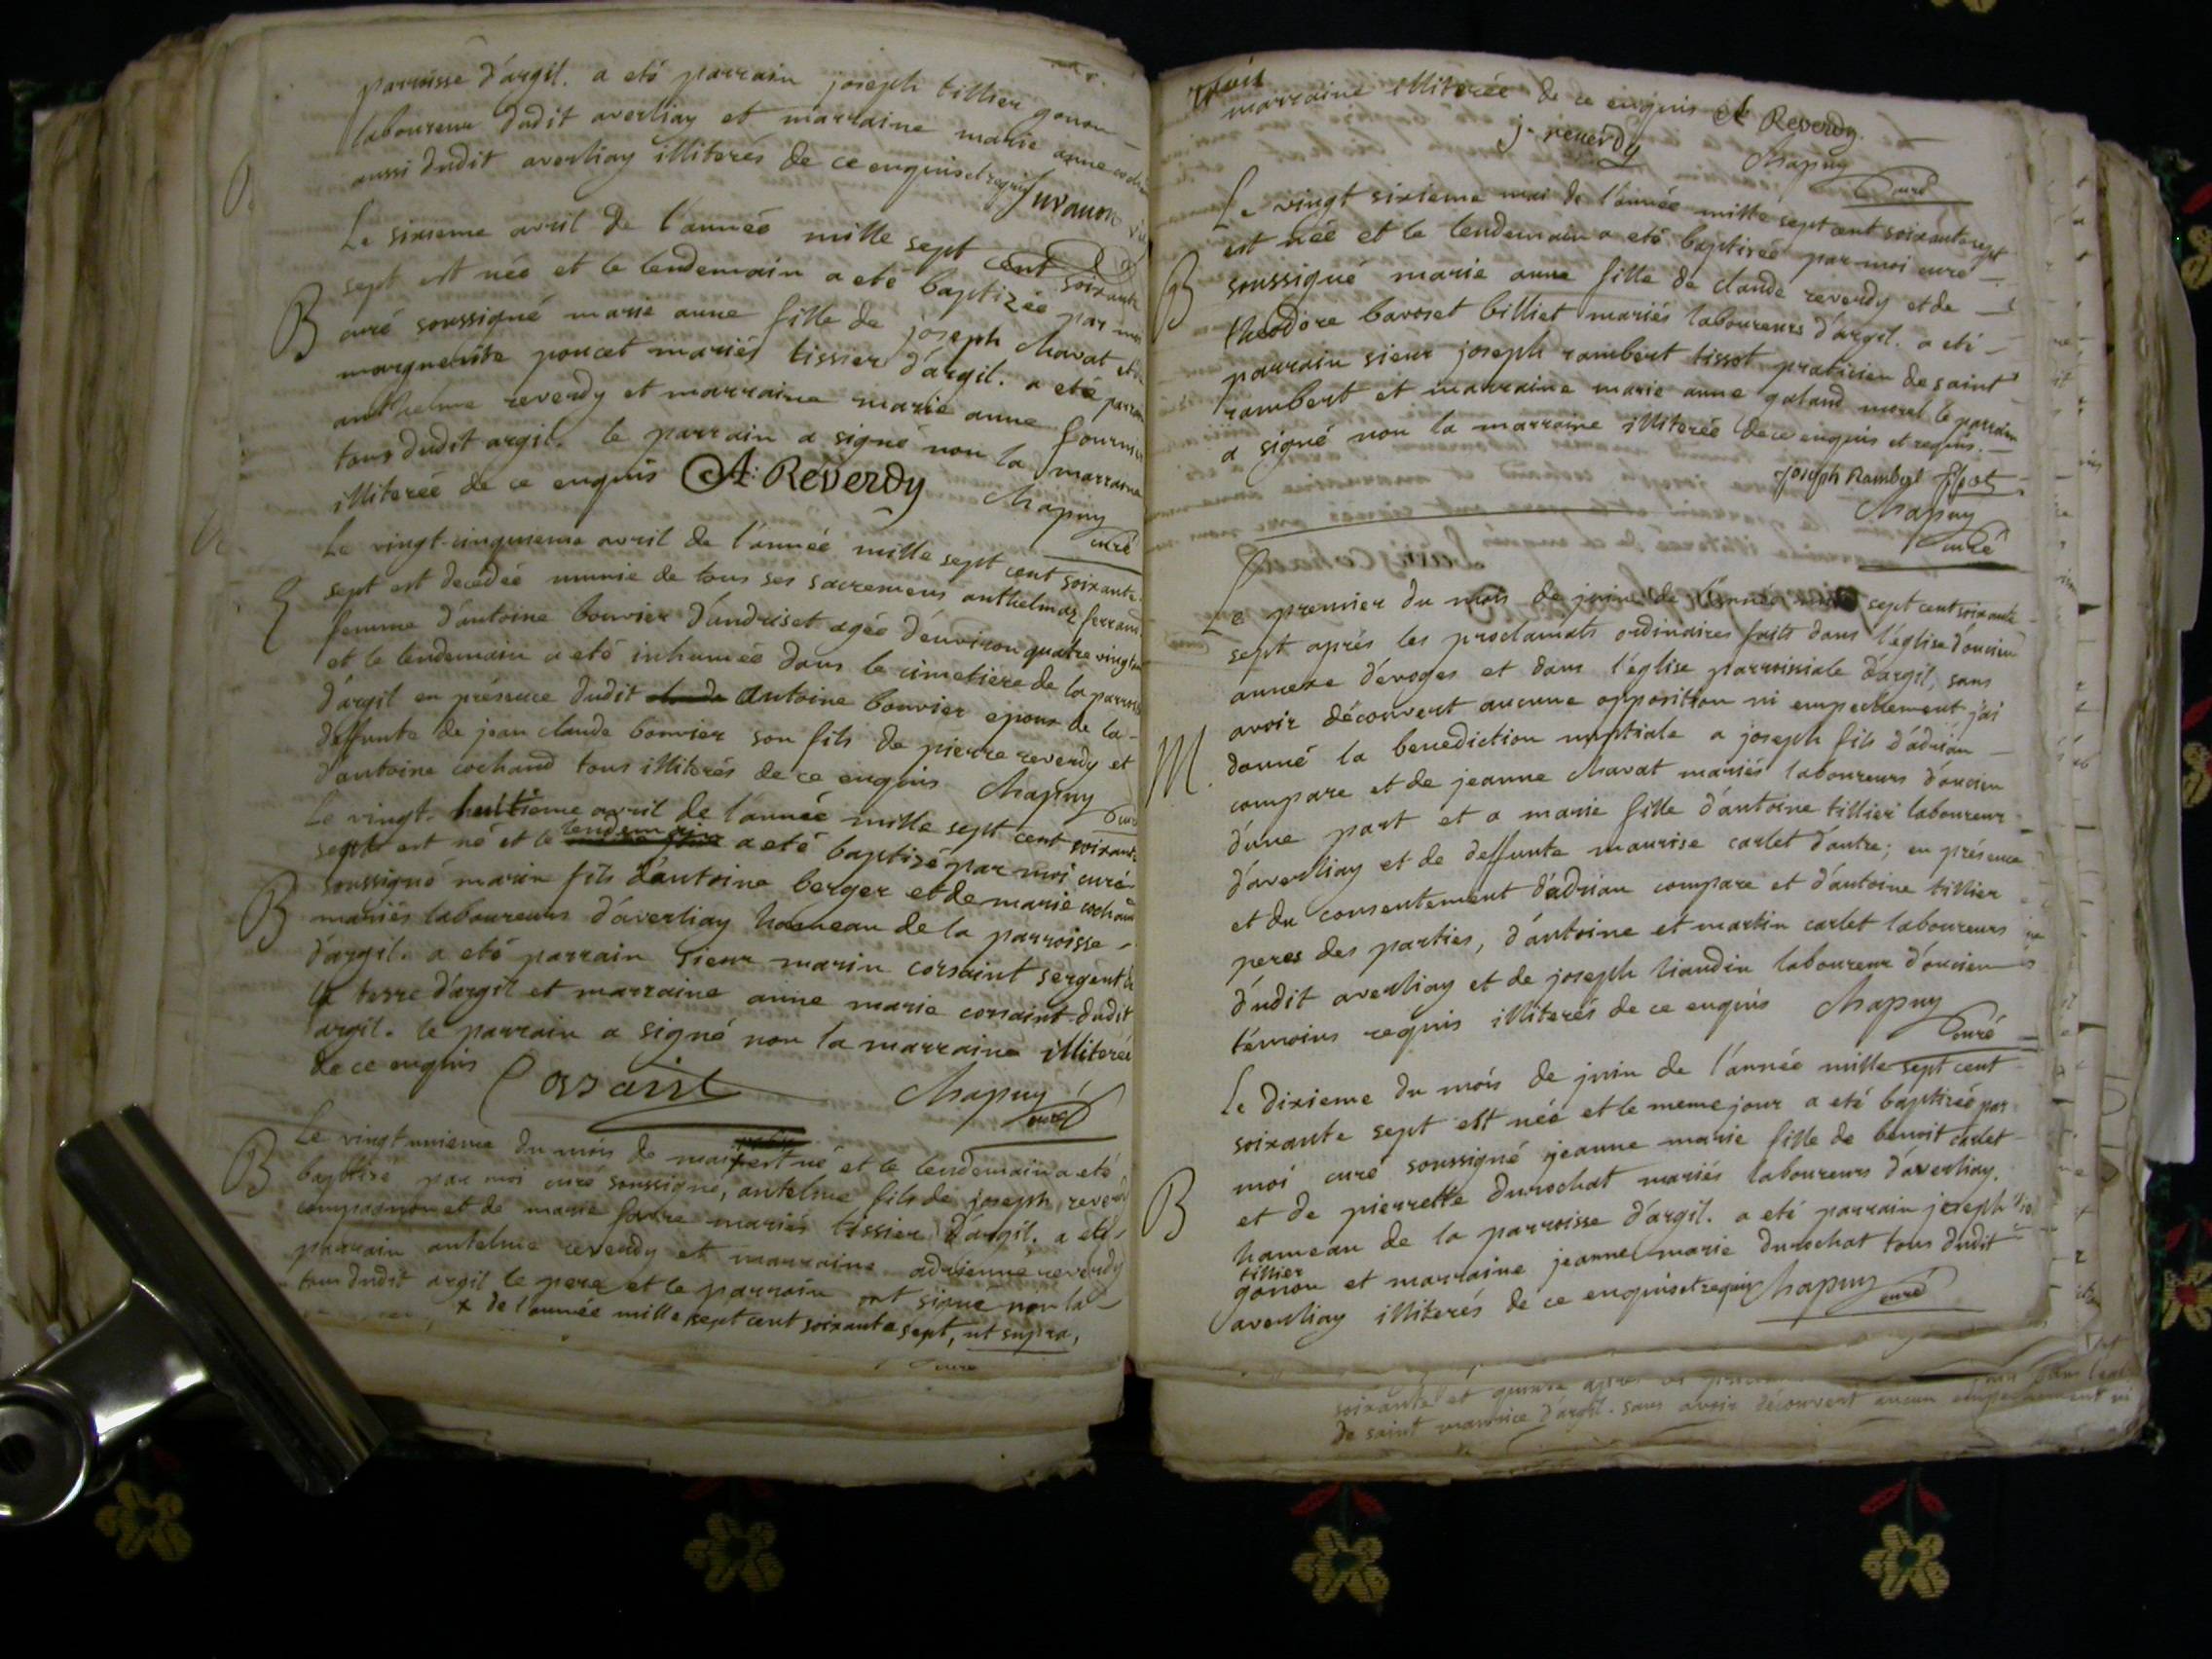 parroisse d'argil. a eté parrain joseph tillier gonon
laboureur dudit averliay et marraine marie anne
aussi dudit averliay illiterés de ce enquis et requis
Le sixieme avril de l'année mille sept cent soixante
sept est née et le lendemain a eté baptizée par moi
B
curé soussigné marie anne fille de joseph Chavat et de
marguerite poncet mariés tissier d'argil. a eté parrain
anthelme reverdy et marraine marie anne fournier
tous dudit argil. le parrain a signé non la marraine
illiterée de ce enquis A: Reverdy Chapuy
curé
Le vingt-cinquieme avril de l'année mille sept cent soixante
sept est decedée munie de tous ses sacremens anthelmaz ferrand
femme d'antoine bouvier d'andriset agée d'environ quatre vingt
et le lendemain a eté inhumée dans le cimetiere de la parroisse
d'argil en présence dudit antoine bouvier epoux de la
deffunte de jean claude bouvier son fils de pierre reverdy et
d'antoine cochand tous illiterés de ce enquis Chapuy
curé
Le vingt-huitieme avril de l'année mille sept cent soixante
sept est né et le lendemain a eté baptizé par moi curé
B
soussigné marin fils d'antoine berger et de marie cochand
mariés laboureurs d'averliay hameau de la parroisse
d'argil. a eté parrain sieur marin corsaint sergent de
la terre d'argil et marraine anne marie corsaint dudit
argil. le parrain a signé non la marraine illiterée
de ce enquis Corsaint Chapuy
curé
B
Le vingt unieme du mois de mai x est né et le lendemain a eté
baptisé par moi curé soussigné, antelme fils de joseph reverdy
compagnon et de marie favre mariés tissier d'argil. a eté
parrain antelme reverdy et marraine adrienne reverdy
tous dudit argil le pere et le parrain ont signé non la
x de l'année mille sept cent soixante sept, ut supra,
curé
marraine illiterée de ce enquis A Reverdy.
j. reverdy Chapuy
curé
Le vingt sixieme mai de l'année mille sept cent soixante sept
est née et le lendemain a eté baptisée par moi curé
B
soussigné marie anne fille de claude reverdy et de
theodore bavoset billiet mariés laboureurs d'argil. a eté
parrain sieur joseph rambert tissot praticien de saint
rambert et marraine marie anne galand morel le parrain
a signé non la marraine illiterée de ce enquis et requis.
Joseph Rambert tissot
Chapuy
curé
Le premier du mois de juin de l'année mille sept cent soixante
sept aprés les proclamats ordinaires faits dans l'église d'oncieu
annexe d'evoges et dans l'église parroissiale d'argil, sans
avoir découvert aucune opposition ni empechement j'ai
M.
donné la benediction nuptiale a joseph fils d'adrian
compare et de jeanne Chavat mariés laboureurs d'oncieu
d'une part et a marie fille d'antoine tillier laboureur
d'averliay et de deffunte maurise carlet d'autre; en présence
et du consentement d'adrian compare et d'antoine tillier
peres des parties, d'antoine et martin carlet laboureurs
dudit averliay et de joseph liaudin laboureur d'oncieu
témoins requis illiterés de ce enquis Chapuy
curé
Le dixieme du mois de juin de l'année mille sept cent
soixante sept est née et le meme jour a eté baptizée par
moi curé soussigné jeanne marie fille de benoit carlet
B
et de pierrette durochat mariés laboureurs d'averliay.
hameau de la parroisse d'argil. a eté parrain joseph
tillier
gonon et marraine jeanne marie durochat tous dudit
averliay illiterés de ce enquis et requis Chapuy
curé
de saint maurice d'argil. sans avoir découvert aucun empechement ni